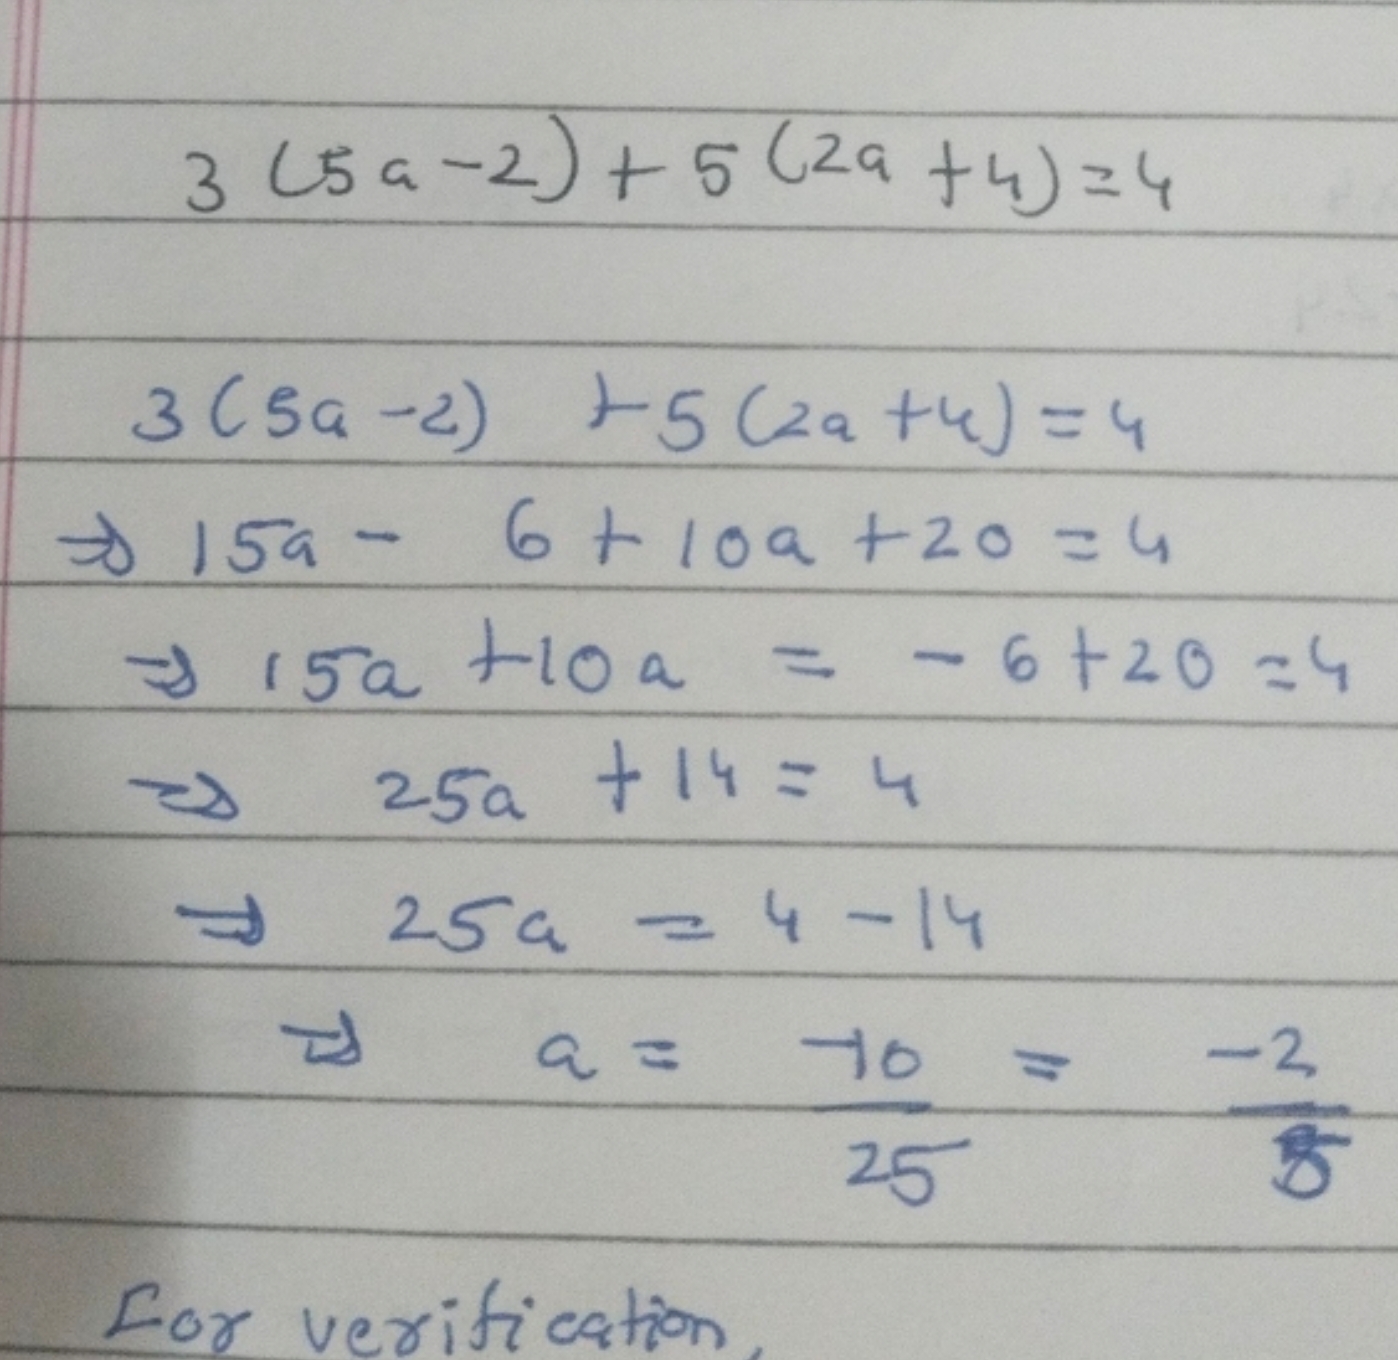 3 (5a-2) + 5 (2a +4) = 4
3 (5a -2) +5 (2a +4) = 4
⇒ 15a - 6 + 10a +20 = 4
⇒ 15a +10a = - 6 +20 =4
⇒ 25a +14 = 4
⇒ 25a = 4 -14
⇒ a = -10/25 = -2/5
For verification,